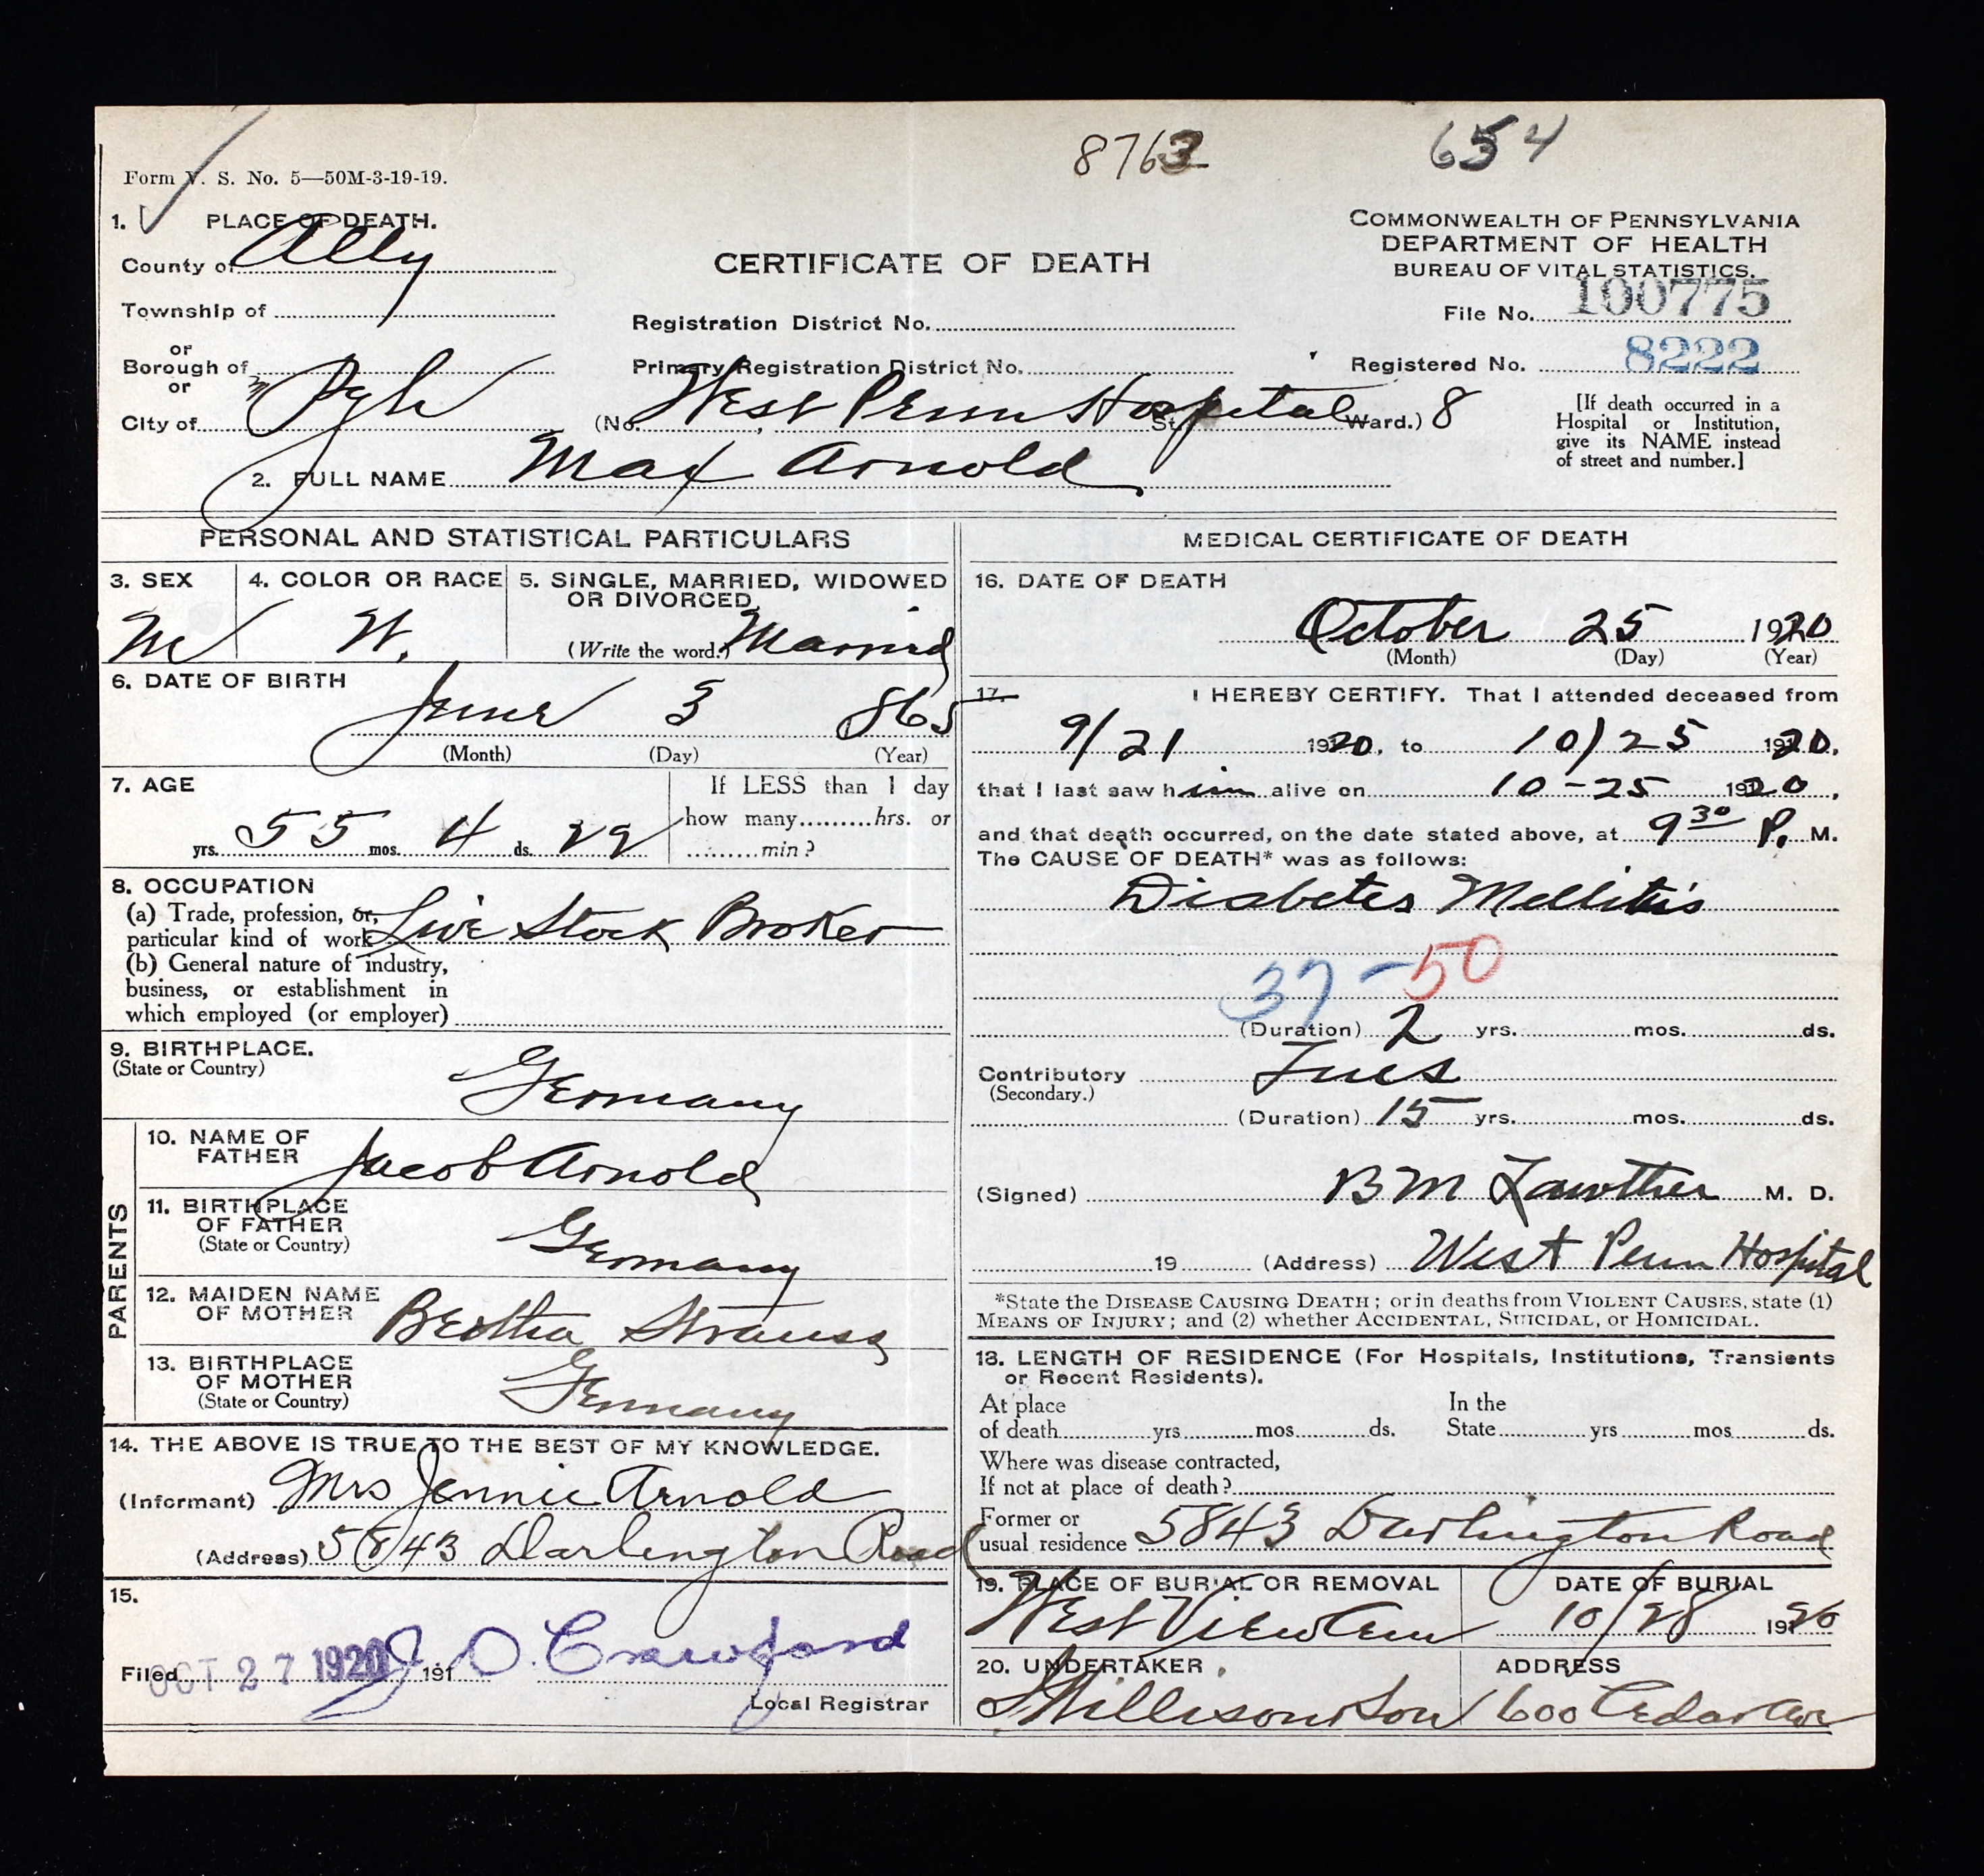 8763 654
Form V. S. No. 5—50M-3-19-19.
1. PLACE OF DEATH.
County of Ally
Township of
or
Borough of
or
City of Pgh
CERTIFICATE OF DEATH
Registration District No.
Primary Registration District No.
(No. West Penn Hospital St. Ward.) 8
COMMONWEALTH OF PENNSYLVANIA
DEPARTMENT OF HEALTH
BUREAU OF VITAL STATISTICS.
File No. 100775
Registered No. 8222
[If death occurred in a
Hospital or Institution,
give its NAME instead
of street and number.]
2. FULL NAME Max Arnold
PERSONAL AND STATISTICAL PARTICULARS
3. SEX
M
4. COLOR OR RACE
W.
5. SINGLE, MARRIED, WIDOWED
OR DIVORCED
(Write the word.) Married
6. DATE OF BIRTH
June 3 865
(Month) (Day) (Year)
7. AGE
yrs. 55 mos. 4 ds. 22
If LESS than 1 day
how many.........hrs. or
.........min?
8. OCCUPATION
(a) Trade, profession, or,
particular kind of work Live Stock Broker
(b) General nature of industry,
business, or establishment in
which employed (or employer)
9. BIRTHPLACE.
(State or Country)
Germany
PARENTS
10. NAME OF
FATHER
Jacob Arnold
11. BIRTHPLACE
OF FATHER
(State or Country)
Germany
12. MAIDEN NAME
OF MOTHER
Bertha Strauss
13. BIRTHPLACE
OF MOTHER
(State or Country)
Germany
14. THE ABOVE IS TRUE TO THE BEST OF MY KNOWLEDGE.
(Informant) Mrs Jennie Arnold
(Address) 5843 Darlington Road
15.
Filed OCT 27 1920 191 J. O. Crawford
Local Registrar
MEDICAL CERTIFICATE OF DEATH
16. DATE OF DEATH
October 25 1920
(Month) (Day) (Year)
17. I HEREBY CERTIFY. That I attended deceased from
9/21 1920, to 10/25 1920,
that I last saw him alive on 10-25 1920,
and that death occurred, on the date stated above, at 9 30 P. M.
The CAUSE OF DEATH* was as follows:
Diabetes Mellitis
37-50
(Duration) 2 yrs. mos. ds.
Contributory
(Secondary.)
Lues
(Duration) 15 yrs. mos. ds.
(Signed) B M Lawther M. D.
19 (Address) West Penn Hospital
*State the DISEASE CAUSING DEATH; or in deaths from VIOLENT CAUSES, state (1)
MEANS OF INJURY; and (2) whether ACCIDENTAL, SUICIDAL, or HOMICIDAL.
18. LENGTH OF RESIDENCE (For Hospitals, Institutions, Transients
or Recent Residents).
At place
of death yrs mos ds.
In the
State yrs mos ds.
Where was disease contracted,
If not at place of death?
Former or
usual residence 5843 Darlington Road
19. PLACE OF BURIAL OR REMOVAL
West View Cem
DATE OF BURIAL
10/28 1920
20. UNDERTAKER
ADDRESS
600 Cedar Ave